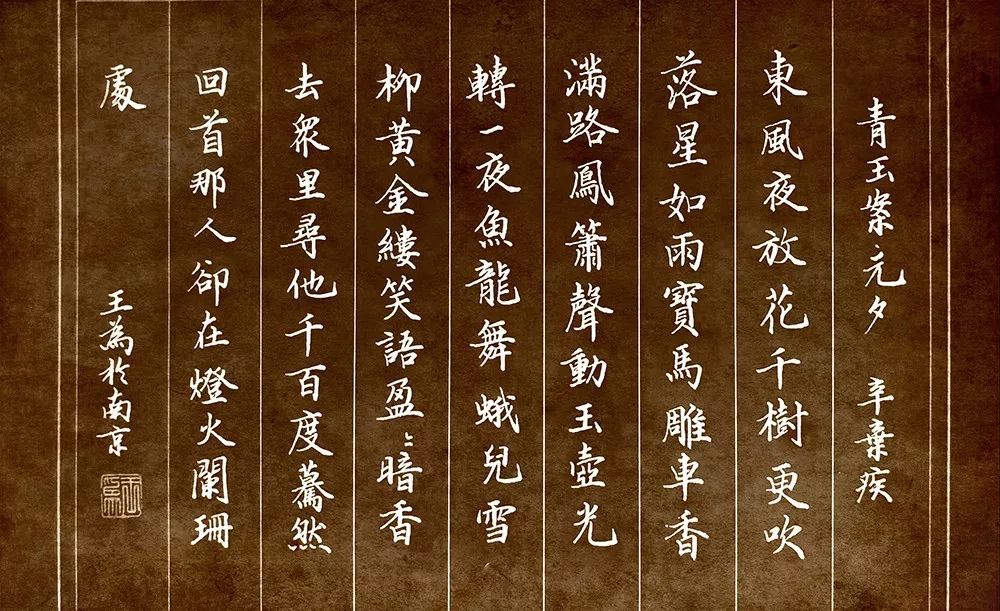 青玉案元夕 辛棄疾
東風夜放花千樹更吹
落星如雨寶馬雕車香
滿路鳳簫聲動玉壺光
轉一夜魚龍舞蛾兒雪
柳黃金縷笑語盈〻暗香
去衆里尋他千百度驀然
回首那人卻在燈火闌珊
處 王為於南京
王為